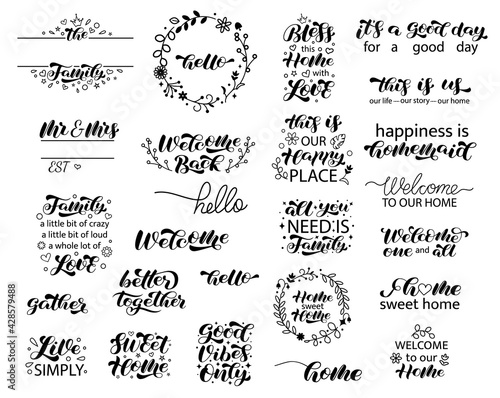 the
Family
hello
Bless
this a
Home
with
Love
it's a good day
for a good day
this is us
our life—our story—our home
Mr & Mrs
EST
Welcome
Back
this is
OUR
Happy
PLACE
happiness is
homemaid
Family
a little bit of crazy
a little bit of loud
a whole lot of
Love
hello
Welcome
all you
NEED IS
Family
Welcome
TO OUR HOME
Welcome
one and all
gather
better
together
hello
Home
sweet
Home
home
sweet home
Live
SIMPLY
Sweet
Home
Good
Vibes
Only
home
WELCOME
to our
Home
Adobe Stock | #428579488